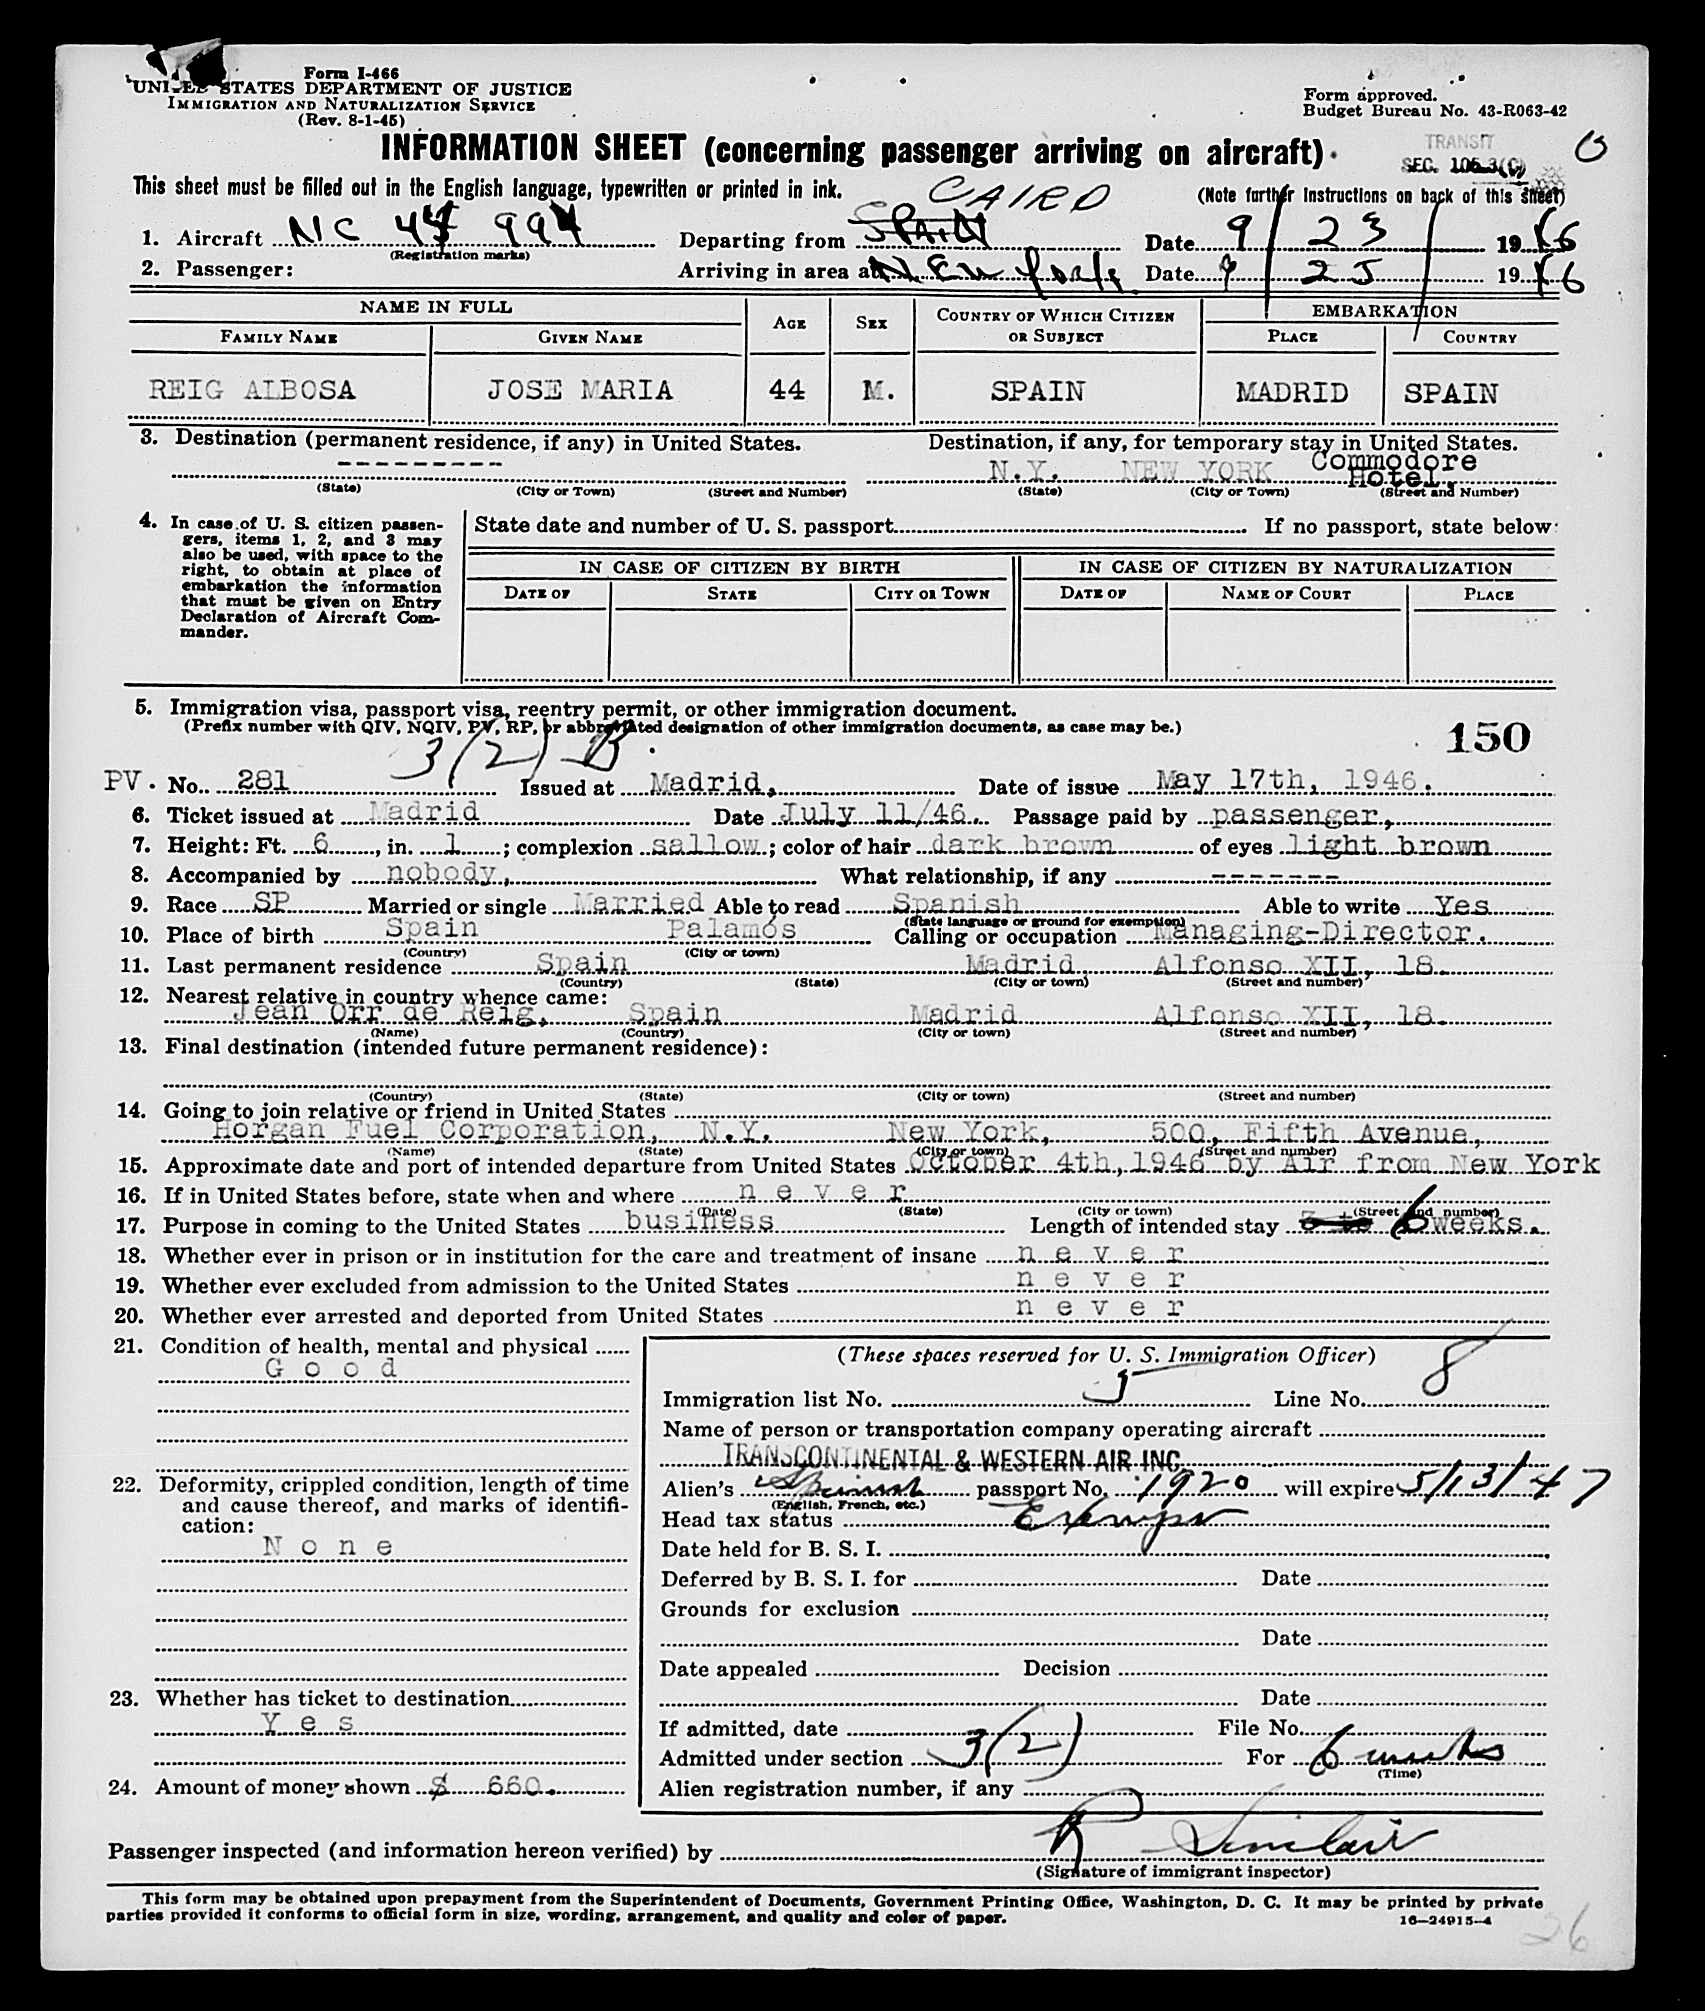 Form I-466
UNITED STATES DEPARTMENT OF JUSTICE
IMMIGRATION AND NATURALIZATION SERVICE
(Rev. 8-1-45)
Form approved.
Budget Bureau No. 43-R063-42
INFORMATION SHEET (concerning passenger arriving on aircraft)
TRANSIT
SEC. 105.3(C)
This sheet must be filled out in the English language, typewritten or printed in ink.
CAIRO
(Note further instructions on back of this sheet)
1. Aircraft NC 994 Departing from SPAIN Date 9/23/ 1946
(Registration marks)
2. Passenger: Arriving in area at New York Date 9/25/ 1946
NAME IN FULL AGE SEX COUNTRY OF WHICH CITIZEN OR SUBJECT EMBARKATION
FAMILY NAME GIVEN NAME PLACE COUNTRY
REIG ALBOSA JOSE MARIA 44 M. SPAIN MADRID SPAIN
3. Destination (permanent residence, if any) in United States. Destination, if any, for temporary stay in United States.
--------- N.Y. NEW YORK Commodore Hotel,
(State) (City or Town) (Street and Number) (State) (City or Town) (Street and Number)
4. In case of U. S. citizen passengers, items 1, 2, and 3 may also be used, with space to the right, to obtain at place of embarkation the information that must be given on Entry Declaration of Aircraft Commander.
State date and number of U. S. passport If no passport, state below:
IN CASE OF CITIZEN BY BIRTH IN CASE OF CITIZEN BY NATURALIZATION
DATE OF STATE CITY OR TOWN DATE OF NAME OF COURT PLACE
5. Immigration visa, passport visa, reentry permit, or other immigration document.
(Prefix number with QIV, NQIV, PV, RP, or abbreviated designation of other immigration documents, as case may be.)
150
3(2) B
PV. No. 281 Issued at Madrid, Date of issue May 17th, 1946.
6. Ticket issued at Madrid Date July 11/46. Passage paid by passenger,
7. Height: Ft. 6, in. 1; complexion sallow; color of hair dark brown of eyes light brown
8. Accompanied by nobody, What relationship, if any -------
9. Race SP Married or single Married Able to read Spanish Able to write Yes
(State language or ground for exemption)
10. Place of birth Spain Palamós Calling or occupation Managing-Director.
(Country) (City or town)
11. Last permanent residence Spain Madrid, Alfonso XII, 18.
(Country) (State) (City or town) (Street and number)
12. Nearest relative in country whence came:
Jean Orr de Reig, Spain Madrid Alfonso XII, 18.
(Name) (Country) (City or town) (Street and number)
13. Final destination (intended future permanent residence):
(Country) (State) (City or town) (Street and number)
14. Going to join relative or friend in United States
Horgan Fuel Corporation, N.Y. New York, 500, Fifth Avenue,
(Name) (State) (City or town) (Street and number)
15. Approximate date and port of intended departure from United States October 4th, 1946 by Air from New York
16. If in United States before, state when and where never
(Date) (State) (City or town) (Street and number)
17. Purpose in coming to the United States business Length of intended stay 6 weeks.
18. Whether ever in prison or in institution for the care and treatment of insane never
19. Whether ever excluded from admission to the United States never
20. Whether ever arrested and deported from United States never
21. Condition of health, mental and physical
Good
22. Deformity, crippled condition, length of time and cause thereof, and marks of identification:
None
23. Whether has ticket to destination
Yes
24. Amount of money shown $ 660.
(These spaces reserved for U. S. Immigration Officer)
Immigration list No. 5 Line No. 8
Name of person or transportation company operating aircraft
TRANSCONTINENTAL & WESTERN AIR INC.
Alien's Spanish passport No. 1920 will expire 5/13/47
(English, French, etc.)
Head tax status Exempt
Date held for B. S. I.
Deferred by B. S. I. for Date
Grounds for exclusion
Date
Date appealed Decision
Date
If admitted, date File No.
Admitted under section 3(2) For 6 weeks
(Time)
Alien registration number, if any
Passenger inspected (and information hereon verified) by R Sinclair
(Signature of immigrant inspector)
This form may be obtained upon prepayment from the Superintendent of Documents, Government Printing Office, Washington, D. C. It may be printed by private
parties provided it conforms to official form in size, wording, arrangement, and quality and color of paper.
16—24915-4
26